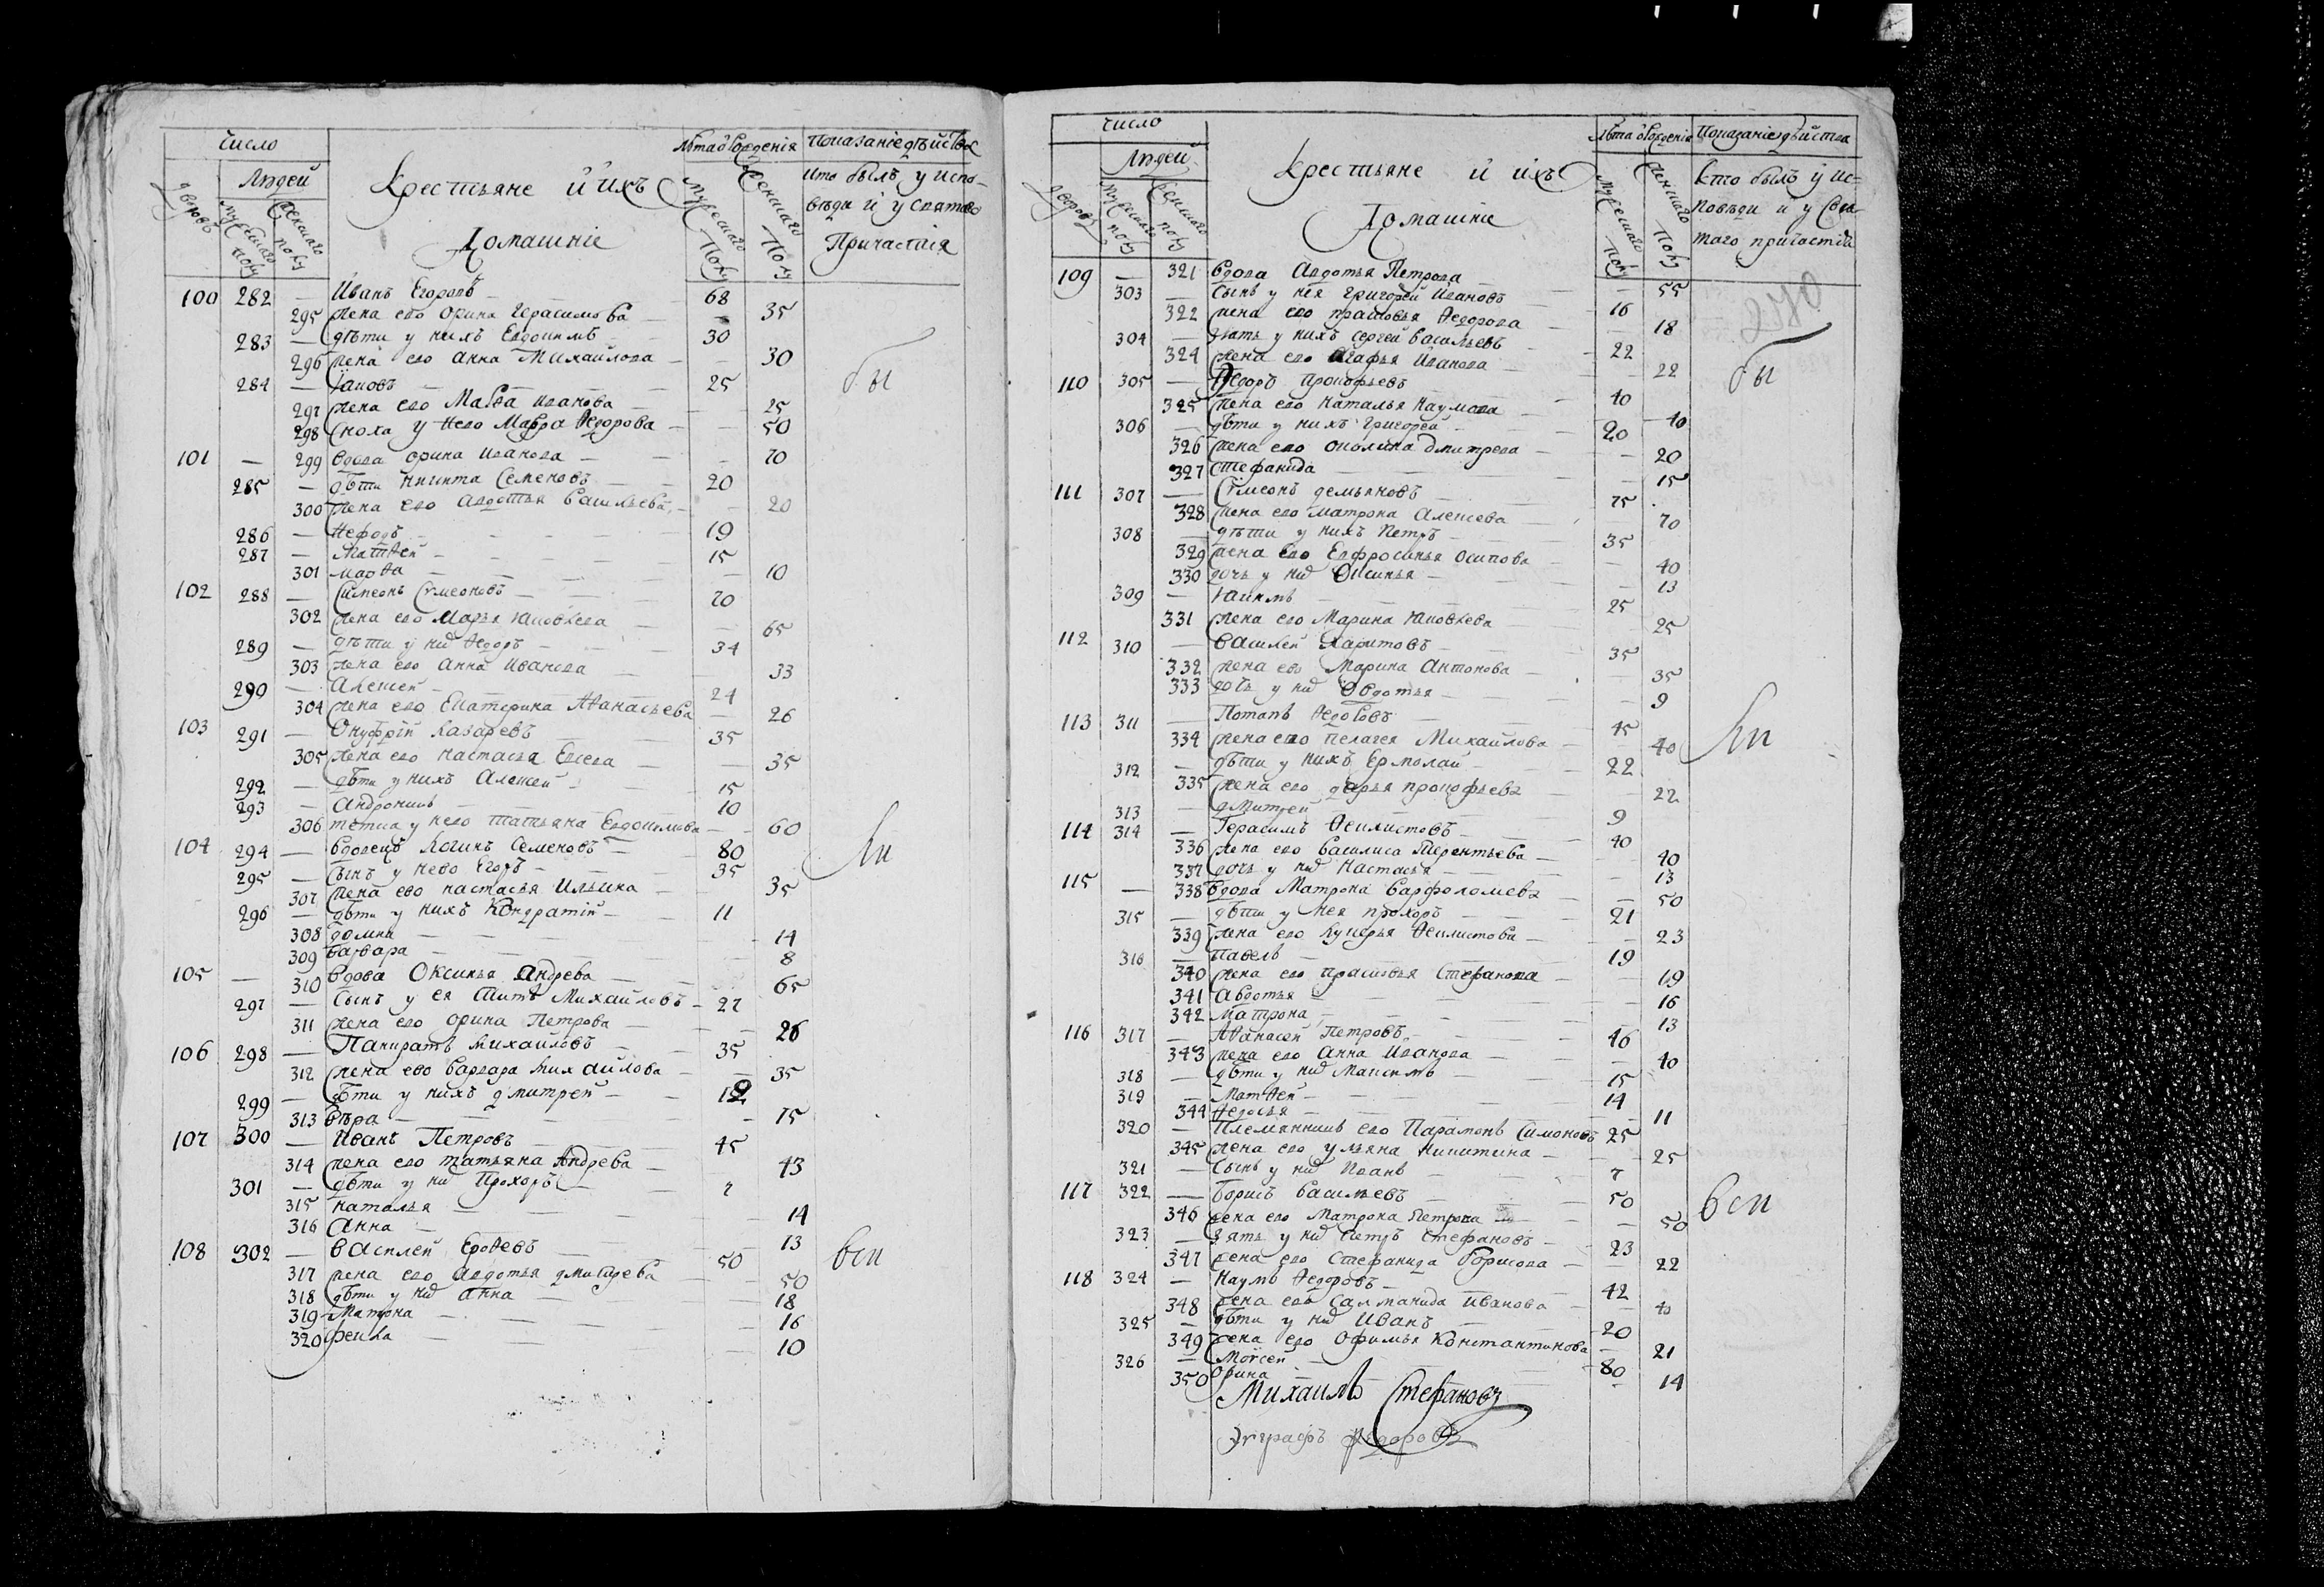 число
Людей
дворовъ
мужескаго полу
женскаго полу
Крестьяне и ихъ
Домашніе
Лѣта ѿ рожденія
мужескаго полу
женскаго полу
Показаніе дѣйства
кто былъ у испо-
вѣди и у святаго
Причастія
100 282 — Иванъ Егоровъ 68
295 жена его орина Герасимова 35
283 — дѣти у нихъ Евдокимъ 30
296 жена его анна Михаилова 30
284 — Іаковъ 25
297 жена его Марѳа иванова 25
298 сноха у него Мавра Ѳедорова 50
бы
101 — 299 вдова орина иванова 70
285 — дѣти никита Семеновъ 20
300 жена его авдотья васильева 20
286 — нефодъ 19
287 — Матѳей 15
301 марѳа 10
102 288 — Симеонъ Сѵмеоновъ 70
302 жена его Марья яковлева 65
289 — дѣти у них Ѳедоръ 34
303 жена его анна иванова 33
290 — Алексей 24
304 жена его Екатерина Аѳанасьева 26
103 291 — Онуфрій Назаревъ 35
305 жена его настасья Елсева 35
292 — дѣти у нихъ Алексей 15
293 — андроникъ 10
306 тетка у него татьяна Евдокимова 60
104 294 — вдовецъ Логинъ Семеновъ 80
295 — сынъ у нево Егоръ 35
307 жена его настасья Ильина 35
296 — дѣти у нихъ Кондратій 11
308 домна 14
309 варвара 8
ли
105 — 310 вдова Оксинья андрева 65
297 — сынъ у ея титъ Михаиловъ 27
311 жена его орина Петрова 26
106 298 — Панкратъ михаиловъ 35
312 жена ево варвара михаилова 35
299 — дѣти у нихъ дмитрей 12
313 Вѣра 15
107 300 — Иванъ Петровъ 45
314 жена его татьяна Андрева 43
301 — дѣти у них Прохоръ 7
315 наталья 14
316 анна 13
108 302 — василей Ероѳевъ 50
317 жена его авдотья дмитрева 50
318 дѣти у них анна 18
319 Матрона 16
320 фекла 10
вси
число
Людей
дворовъ
мужескаго полу
женскаго полу
Крестьяне и ихъ
Домашніе
Лѣта ѿ рожденія
мужескаго полу
женскаго полу
Показаніе дѣйства
кто былъ у ис=
повѣди и у свя-
таго причастія
109 — 321 вдова Авдотья Петрова 55
303 — сынъ у нея григорей ивановъ 16
322 жена его прасковья Ѳедорова 18
304 — зять у нихъ сергей васильевъ 22
324 жена его агафья иванова 22
110 305 — Ѳедоръ прокофьевъ 40
325 жена его наталья наумова 40
306 — дѣти у нихъ григорей 20
326 жена его дмитрева 20
327 стефанида 15
бы
111 307 — Сѵмеонъ демьяновъ 75
328 жена его матрона алексева 70
308 — дѣти у нихъ Петръ 35
329 жена его Евфросинья осипова 40
330 дочь у них Оксинья 13
309 — якимъ 25
331 жена его Марина яковлева 25
112 310 — василей Харитовъ 35
332 жена его Марина антонова 35
333 дочь у них овдотья 9
113 311 — Потапъ 45
334 жена его пелагея Михаилова 40
312 — дѣти у нихъ Ермолай 22
335 жена его дарья прокофьева 22
313 — дмитрей 9
ли
114 314 — Герасимъ Ѳеилистовъ 40
336 жена его василиса терентьева 40
337 дочь у них настасья 13
115 — 338 вдова Матрона варфоломева 50
315 — дѣти у нея прохоръ 21
339 жена его Ѳеилистова 23
316 — павелъ 19
340 жена его прасковья Стефанова 19
341 авдотья 16
342 матрона 13
116 317 — Аѳанасей Петровъ 46
343 жена его анна иванова 40
318 — дѣти у них Максимъ 15
319 — Матѳей 14
344 Ѳедосья 11
320 — племянникъ его Парамонъ Симоновъ 25
345 жена его ульяна никитина 25
321 — сынъ у них иванъ 7
117 322 — Борисъ васильевъ 50
346 жена его Матрона петрова 50
323 — зять у них петръ стефановъ 23
347 жена его стефанида борисова 22
вси
118 324 — Наумъ Ѳедоровъ 42
348 жена его саломанида иванова 40
325 — дѣти у них иванъ 20
349 жена его Офимья константинова 21
326 — Моисей 80
350 орина 14
Михаилъ Стефановъ
Ѳедоровъ